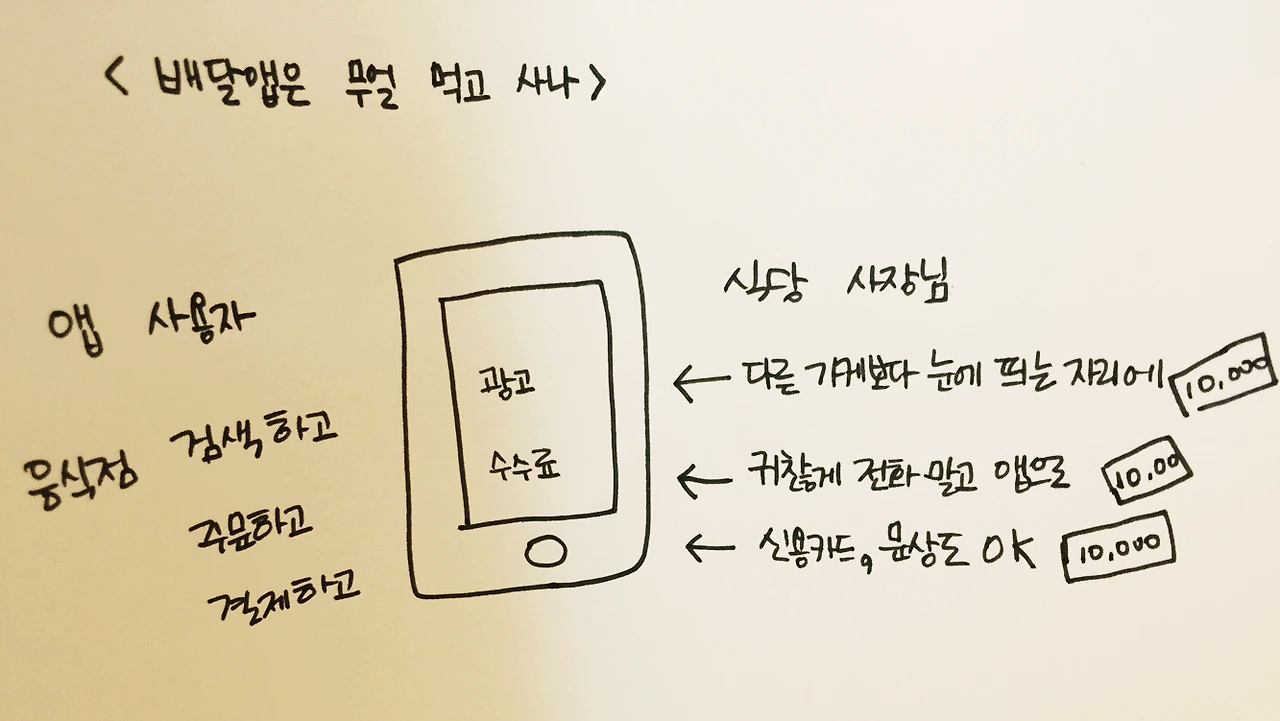 < 배달앱은 무얼 먹고 사나 >
앱 사용자
음식점
검색하고
주문하고
결제하고
광고
수수료
식당 사장님
← 다른 가게보다 눈에 띄는 자리에 10,000
← 귀찮게 전화 말고 앱으로 10,00
← 신용카드, 문상도 OK 10,000